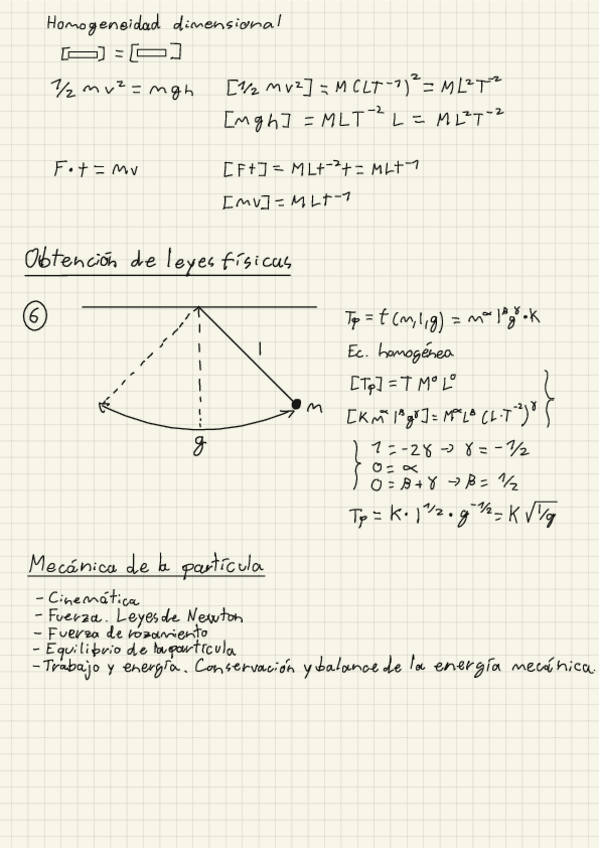 Homogeneidad dimensional
[▭] = [▭]
1/2 mv² = mgh [1/2 mv²] = M(LT⁻¹)² = ML²T⁻²
[mgh] = MLT⁻² L = ML²T⁻²
F·t = mv [Ft] = MLt⁻²t = MLt⁻¹
[mv] = MLt⁻¹
Obtención de leyes físicas
6
l
m
g
Tp = t(m,l,g) = m^α l^β g^γ · K
Ec. homogénea
[Tp] = T M⁰ L⁰
[K m^α l^β g^γ] = M^α L^β (L·T⁻²)^γ
1 = -2γ → γ = -1/2
0 = α
0 = β + γ → β = 1/2
Tp = K · l^1/2 · g^-1/2 = K √l/g
Mecánica de la partícula
- Cinemática
- Fuerza. Leyes de Newton
- Fuerza de rozamiento
- Equilibrio de la partícula
- Trabajo y energía. Conservación y balance de la energía mecánica.